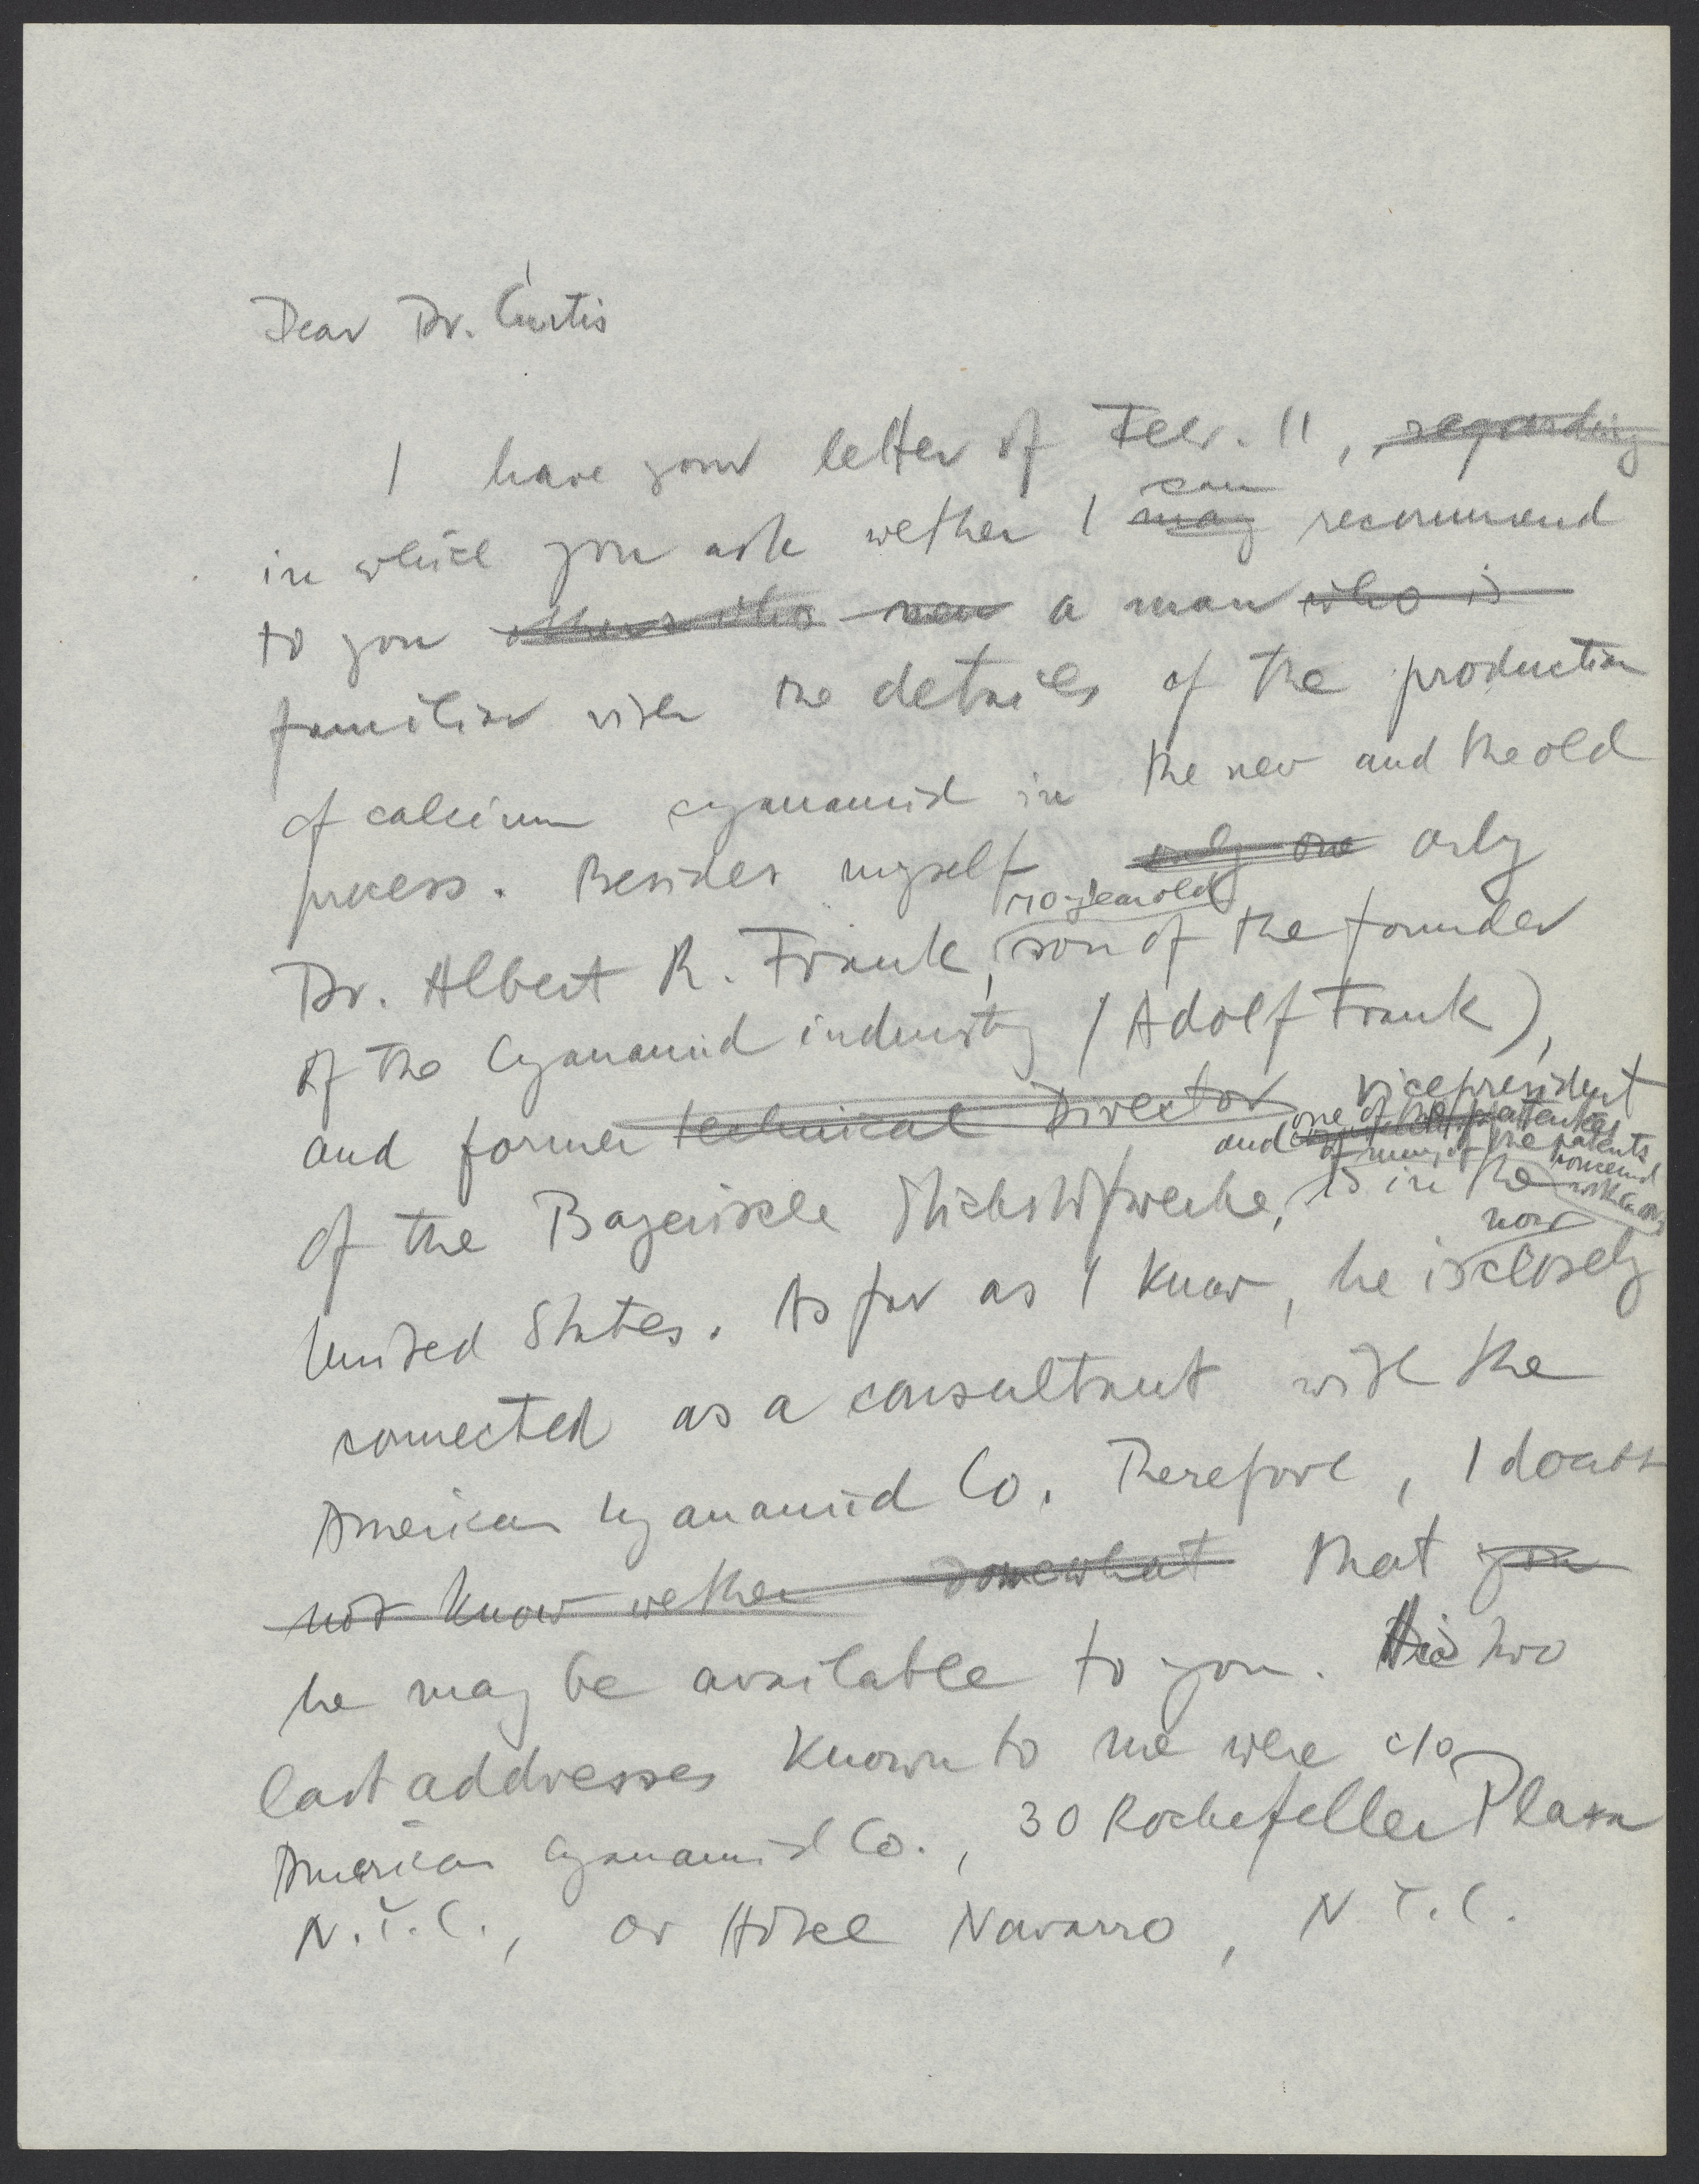 Dear Dr. Curtis
I have your letter of Febr. 11, regarding
can
in which you ask wether I may recommend
to you new a man who is
familiar with the details of the production
of calcium cyanamid in the new and the old
process. Besides myself only one only
70-year old
Dr. Albert R. Frank, son of the founder
of the Cyanamid industry (Adolf Frank),
and former technical Director vicepresident
and one of the patentees
of many of the patents
of the Bayerische Stickstoffwerke, is in the
now
United States. As far as I know, he is closely
connected as a consultant with the
American Cyanamid Co. Therefore, I doubt
not know wether somewhat that you
he may be available to you. His two
last addresses known to me were c/o
American Cyanamid Co., 30 Rockefeller Plaza
N.Y.C., or Hotel Navarro, N.Y.C.